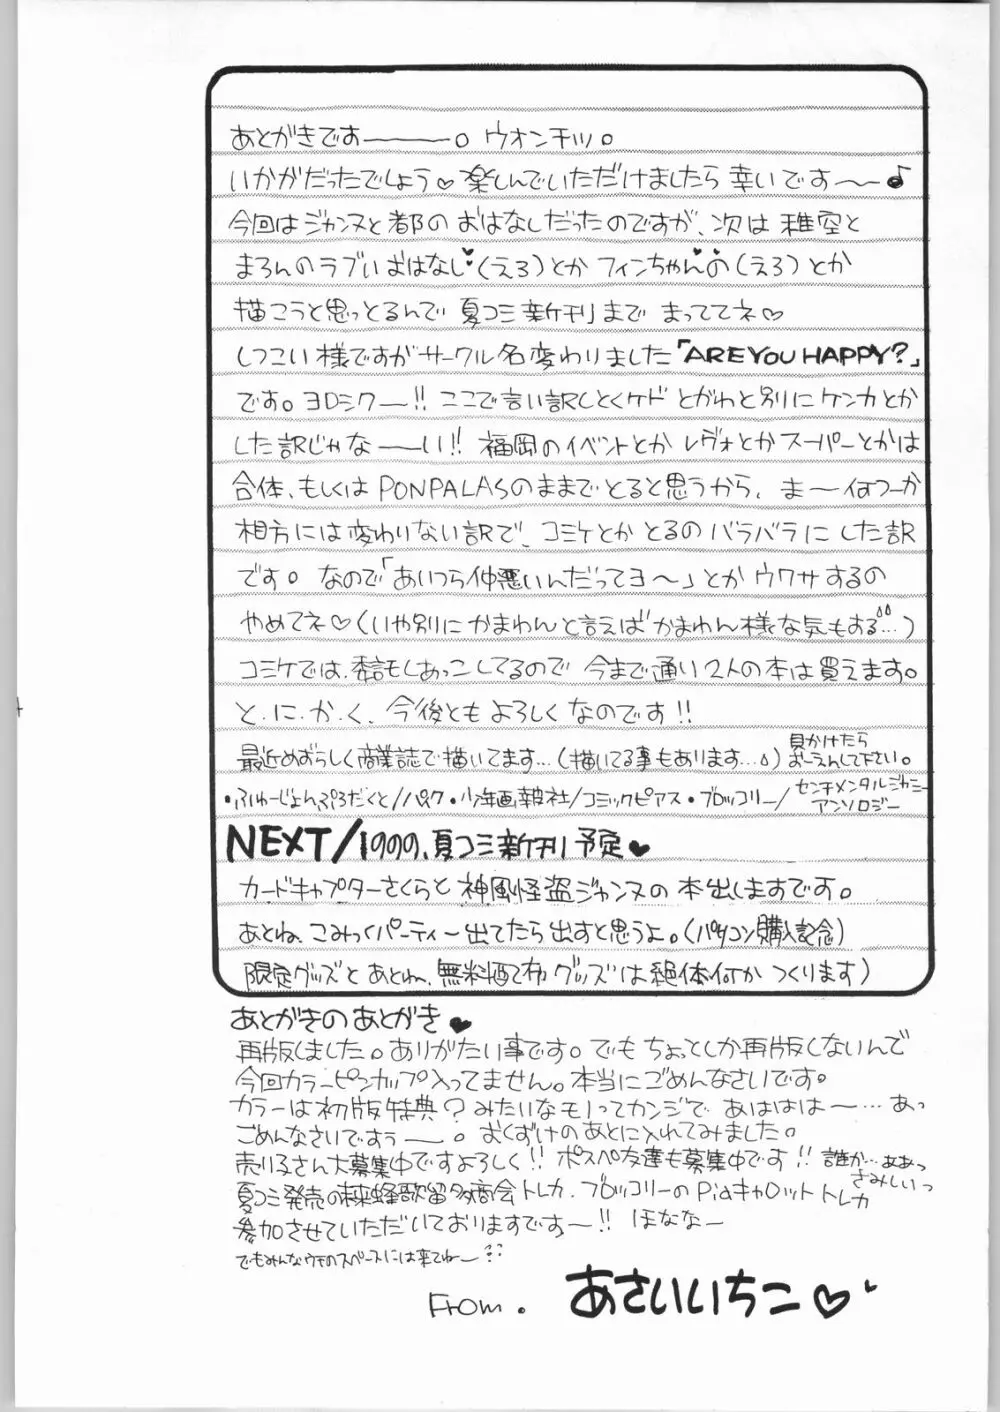 あとがきです———。ウオンチッ。
いかがだったでしょう♡楽しんでいただけましたら幸いです〜〜♪
今回はジャンヌと都のおはなしだったのですが、次は稚空と
まろんのラブいおはなし♥(えろ)とかフィンちゃんの(えろ)とか
描こうと思っとるんで夏コミ新刊までまっててネ♡
しつこい様ですがサークル名変わりました「ARE YOU HAPPY?」
です。ヨロシクー!!ここで言い訳しとくケドとがわと別にケンカとか
した訳じゃな——い!!福岡のイベントとかレヴォとかスーパーとかは
合体、もしくはPONPALASのままでとると思うから、ま〜何つーか
相方には変わりない訳で、コミケとかとるのバラバラにした訳
です。なので「あいつら仲悪いんだってヨ〜」とかウワサするの
やめてネ♡(いや別にかまわんと言えばかまわん様な気もする…)
コミケでは、委託もしあっこしてるので今まで通り2人の本は買えます。
と.に.か.く、今後ともよろしくなのです!!
最近めずらしく商業誌で描いてます…(描いてる事もあります…)見かけたらおーえんして下さい。
・ふゅーじょんぷろだくと/パレク・少年画報社/コミックピアス・ブロッコリー/センチメンタルジャニーアンソロジー
NEXT/1999、夏コミ新刊予定♥
カードキャプターさくらと神風怪盗ジャンヌの本出しますです。
あとね、こみっくパーティー出てたら出すと思うよ。(パソコン購入記念)
限定グッズとあとね、無料配布グッズは絶体何かつくります)
あとがきのあとがき♥
再版しました。ありがたい事です。でもちょっとしか再版しないんで
今回カラーピンナップ入ってません。本当にごめんなさいです。
カラーは初版特典?みたいなモノってカンジであははは〜…あっ
ごめんなさいですぅー。おくずけのあとに入れてみました。
売り子さん大募集中ですよろしく!!ポスペ友達も募集中です!!誰か…ああっさみしいっ
夏コミ発売の蜂歌留多商会トレカ、ブロッコリーのPiaキャロットトレカ
参加させていただいておりますです〜!!ほなな〜
でもみんなウチのスペースには来てね〜
From. あさいいちこ♡